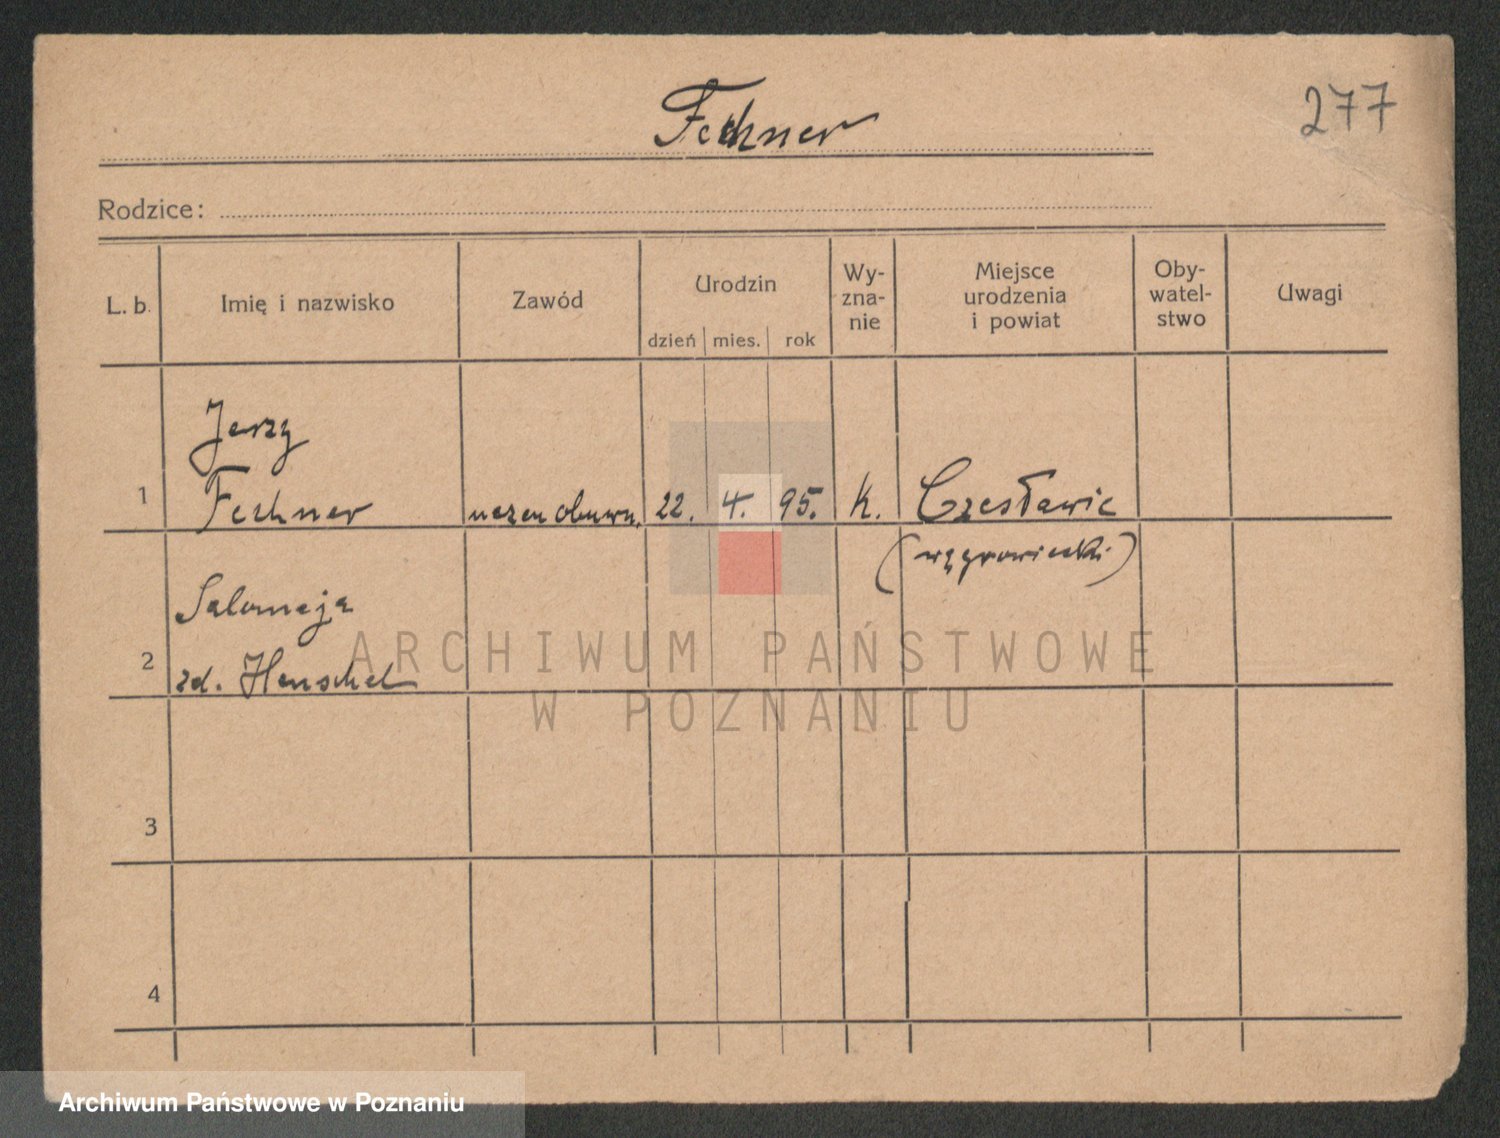 277
Fechner
Rodzice:
L. b.
Imię i nazwisko
Zawód
Urodzin
dzień mies. rok
Wy-
zna-
nie
Miejsce
urodzenia
i powiat
Oby-
watel-
stwo
Uwagi
Jerzy
1 Fechner uczeń obuwn. 22. 4. 95. K. Czesławic
(wągrowiecki)
Salomeja
2 zd. Henschel
ARCHIWUM PAŃSTWOWE
W POZNANIU
3
4
Archiwum Państwowe w Poznaniu